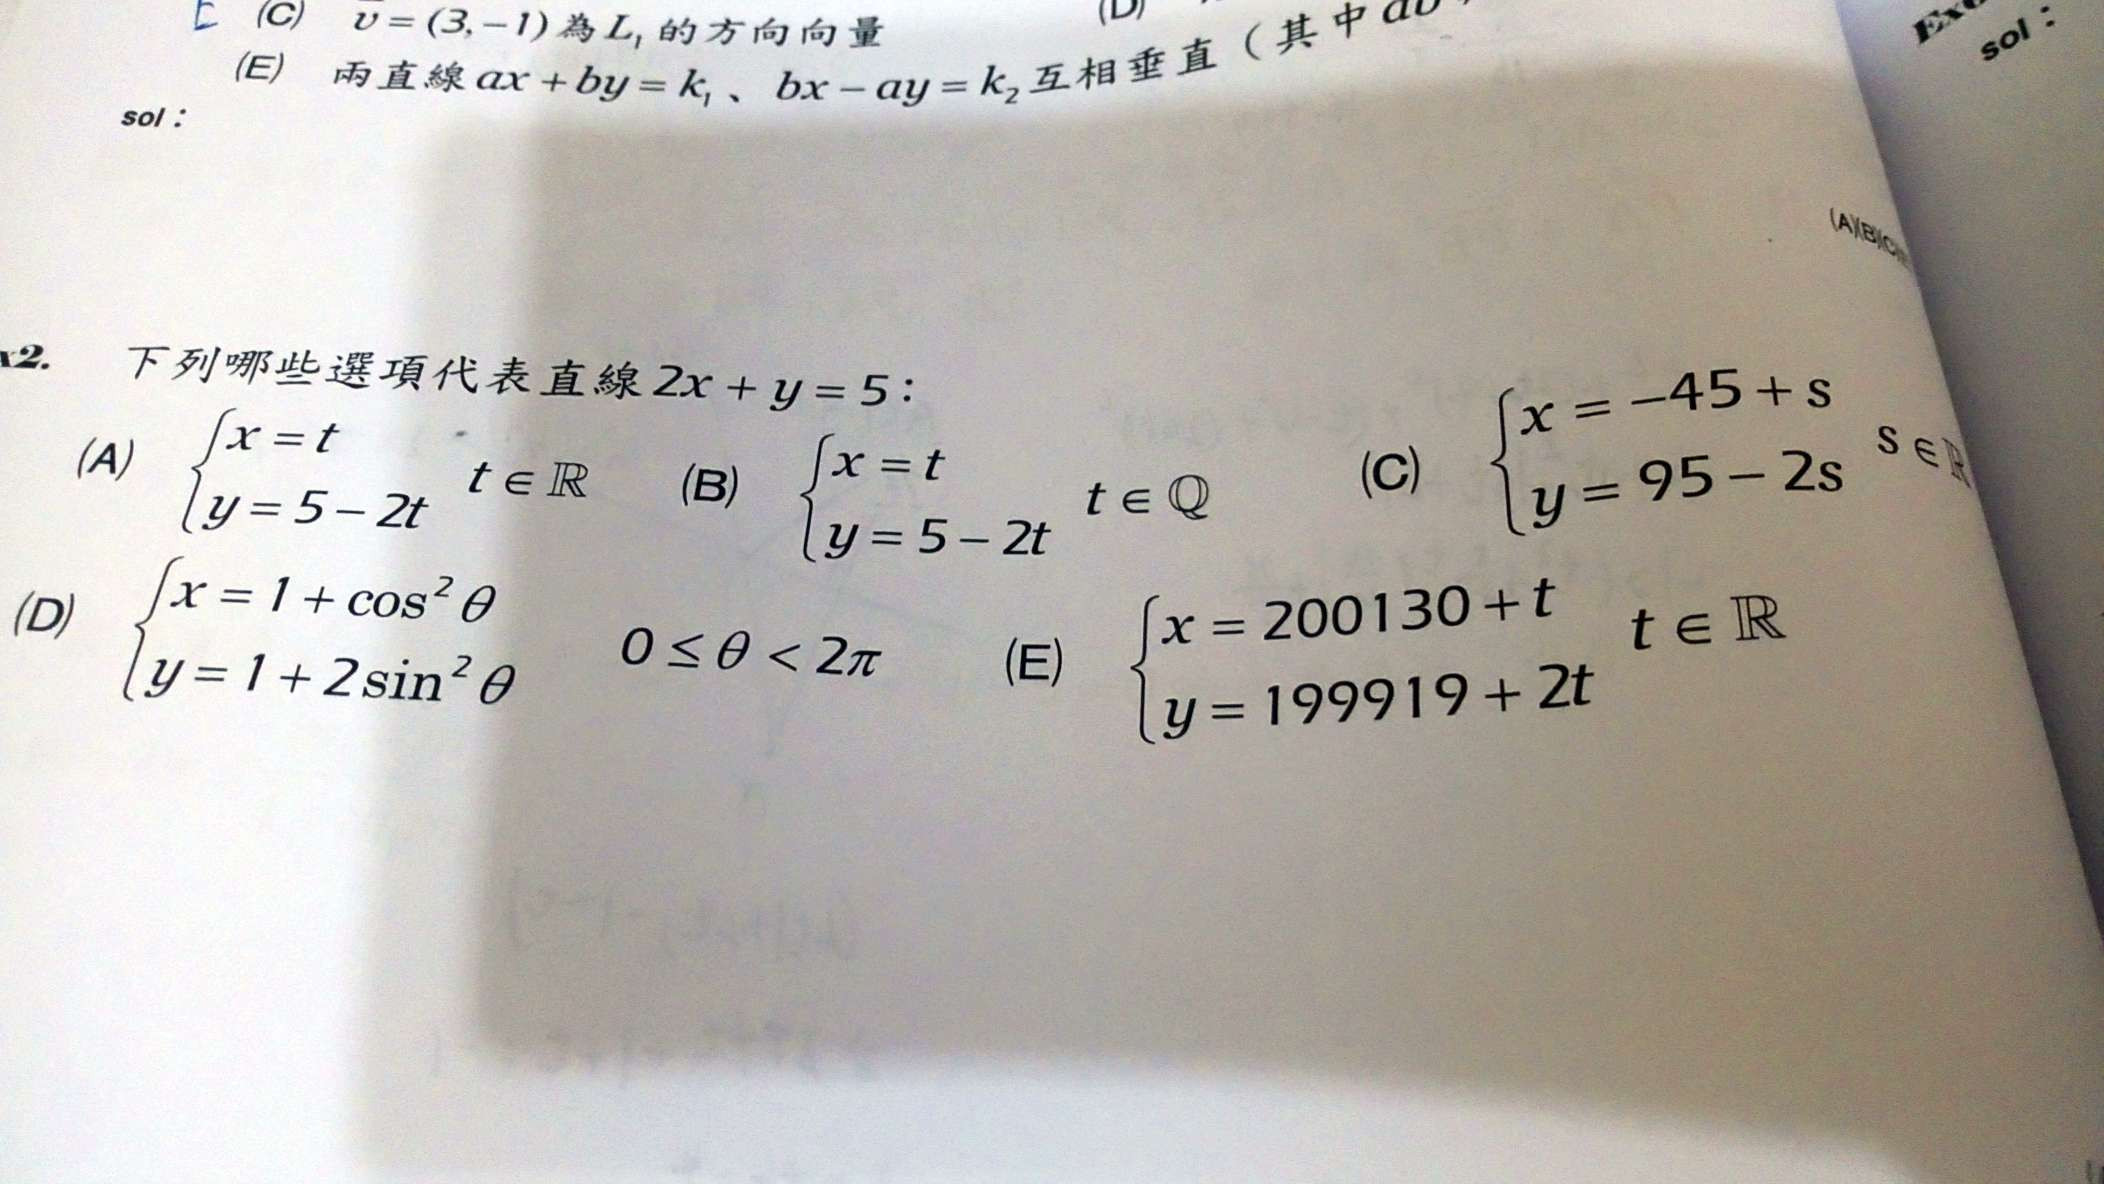 (C) v = (3, −1) 為 L₁ 的方向向量 (D)
(E) 兩直線 ax + by = k₁、bx − ay = k₂ 互相垂直（其中
sol：
sol：
(A)(B)(C)
x2. 下列哪些選項代表直線 2x + y = 5：
(A) { x = t
y = 5 − 2t t ∈ ℝ
(B) { x = t
y = 5 − 2t t ∈ ℚ
(C) { x = −45 + s
y = 95 − 2s s ∈ ℝ
(D) { x = 1 + cos² θ
y = 1 + 2 sin² θ 0 ≤ θ < 2π
(E) { x = 200130 + t
y = 199919 + 2t t ∈ ℝ